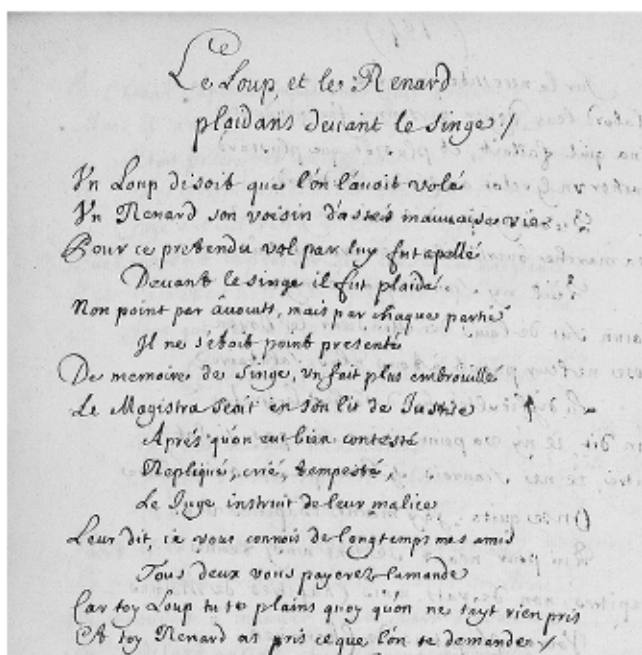 Le Loup, et le Renard
plaidans devant le singe /
Vn Loup disoit que l'on l'auoit volé
Vn Renard son voisin d'assés mauuaise vie
Pour ce pretendu vol par luy fut apellé
Deuant le singe il fut plaidé
Non point par auocats, mais par chaque partie
Il ne s'etoit point presenté
De memoire de singe, vn fait plus embrouillé
Le Magistra seoit en son lit de Justice
Aprés qu'on eut bien contesté
Repliqué, crié, tempesté,
Le Juge instruit de leur malice
Leur dit, ie vous connois de longtemps mes amis
Tous deux vous payerez lamande
Car toy Loup tu te plains quoy qu'on ne tayt rien pris
Et toy Renard as pris ce que l'on te demande /